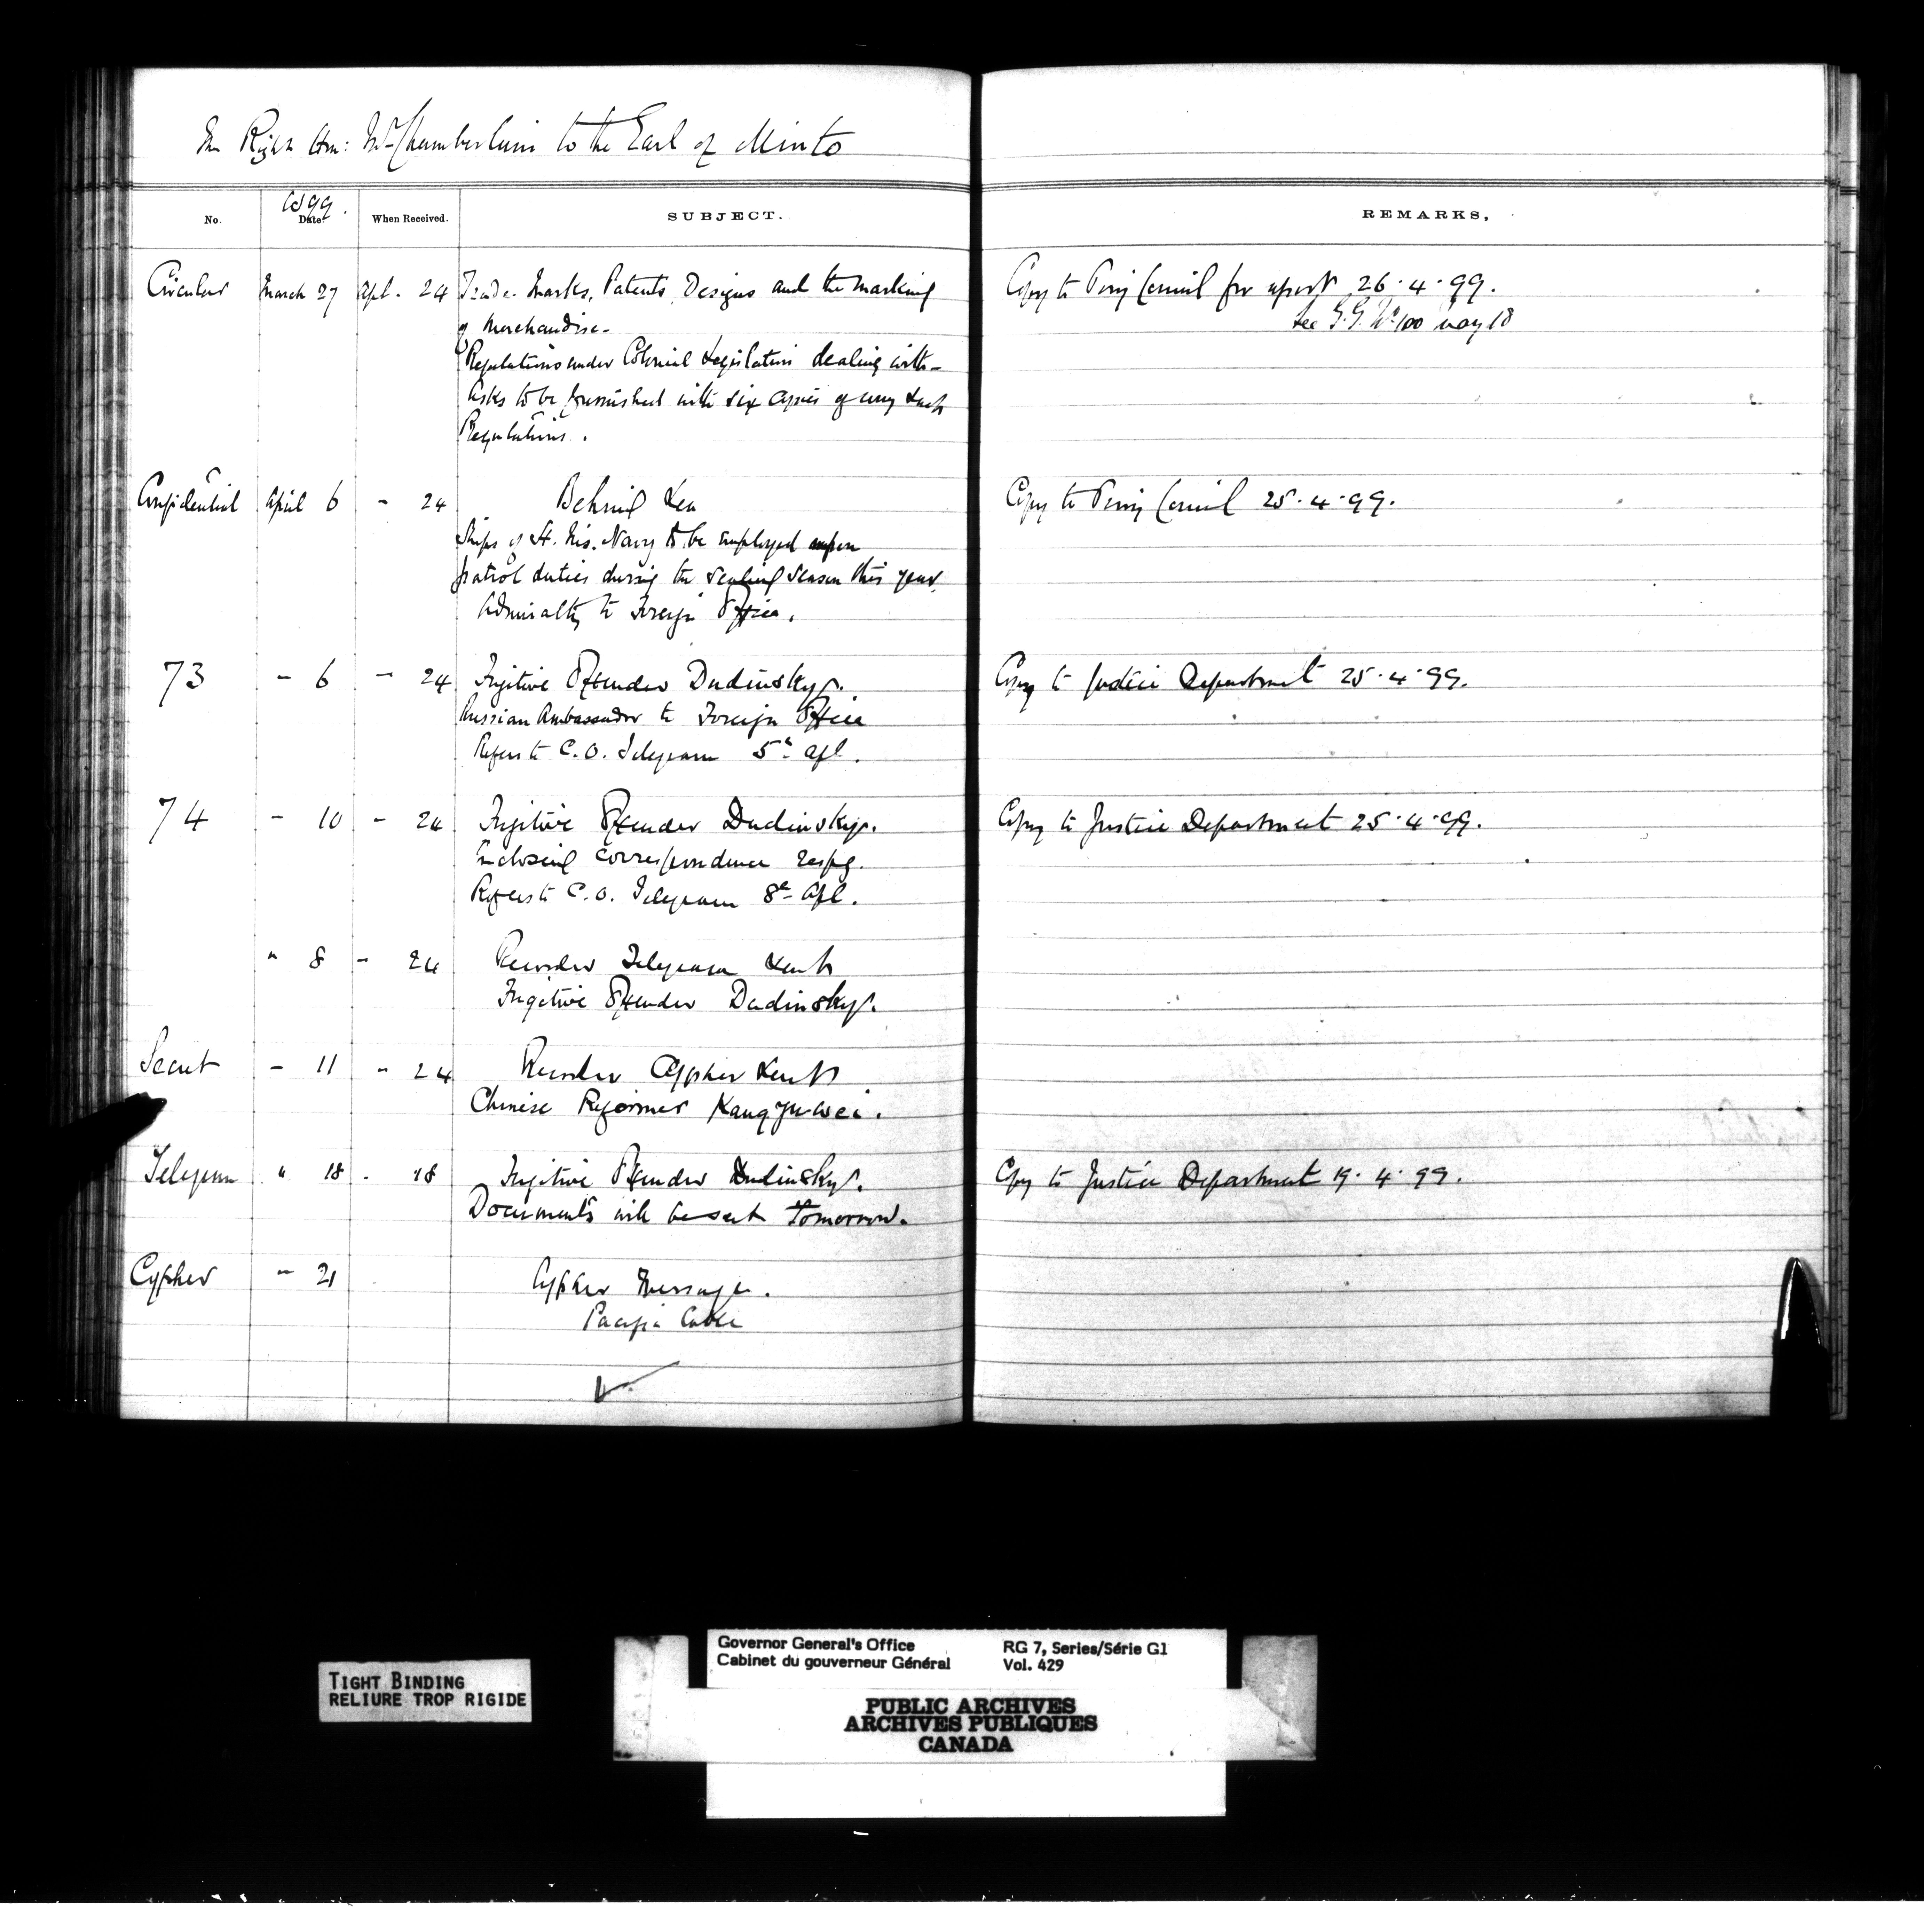 The Right Hon: Mr Chamberlain to the Earl of Minto
1899.
No. Date When Received. SUBJECT. REMARKS.
Circular March 27 Apl. - 24 Trade Marks, Patents, Designs and the marking Copy to Privy Council for report 26.4.99.
of Merchandise - See G.G. No 100 May 18
Regulations under Colonial Legislation dealing with -
Asks to be furnished with six copies of any such
Regulations.
Confidential April 6 - 24 Behring Sea Copy to Privy Council 25.4.99.
Ships of H. Ms. Navy to be employed upon
patrol duties during the sealing season this year.
Admiralty to Foreign Office.
73 - 6 - 24 Fugitive Offender Dudinsky. Copy to Justice Department 25.4.99.
Russian Ambassador to Foreign Office
Refers to C.O. Telegram 5th Apl.
74 - 10 - 24 Fugitive Offender Dudinsky. Copy to Justice Department 25.4.99.
Enclosing correspondence respg.
Refers to C.O. Telegram 8th Apl.
" 8 - 24 Recorder Telegram sent
Fugitive Offender Dudinsky.
Secret - 11 - 24 Recorder Cypher sent
Chinese Reformer Kang Yu-wei.
Telegram " 18 - 18 Fugitive Offender Dudinsky. Copy to Justice Department 19.4.99.
Documents will be sent tomorrow.
Cypher - 21 Cypher Message.
Pacific Cable
TIGHT BINDING
RELIURE TROP RIGIDE
Governor General's Office RG 7, Series/Série G1
Cabinet du gouverneur Général Vol. 429
PUBLIC ARCHIVES
ARCHIVES PUBLIQUES
CANADA